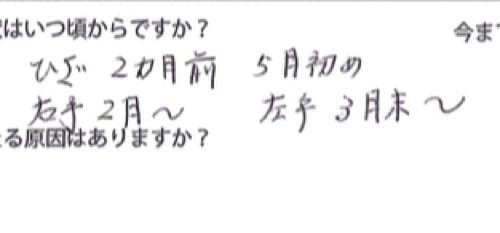 はいつ頃からですか？ 今ま
ひざ 2カ月前 5月初め
右手 2月〜 左手 3月末〜
る原因はありますか？